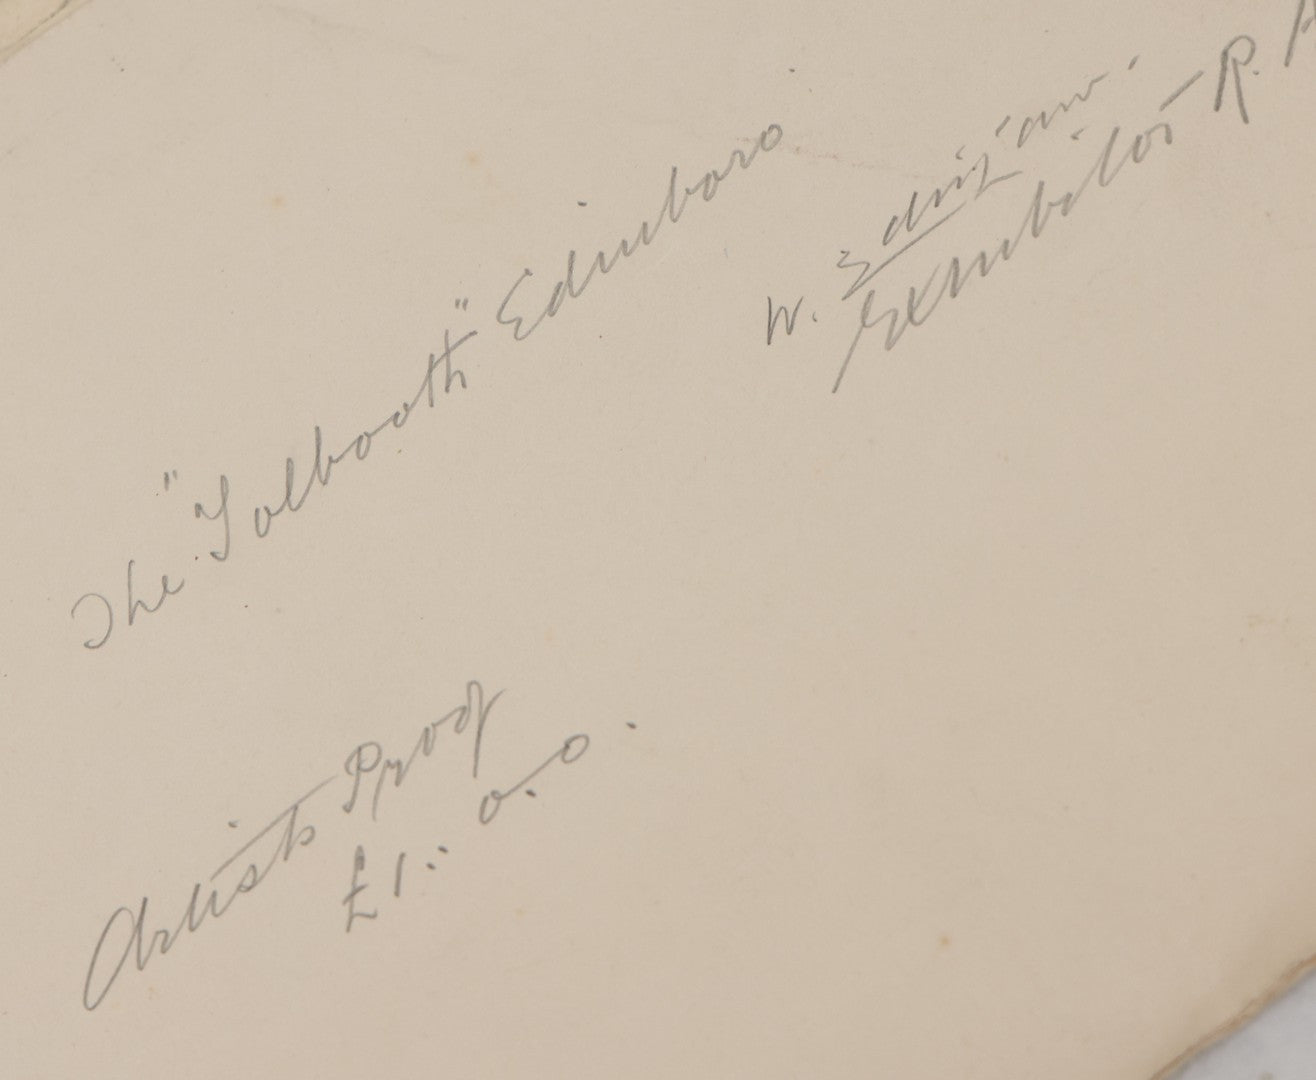 The "Tolbooth" Edinboro
W.
Exhibitor - R. A
Artists Proof
£1.. 0. 0.